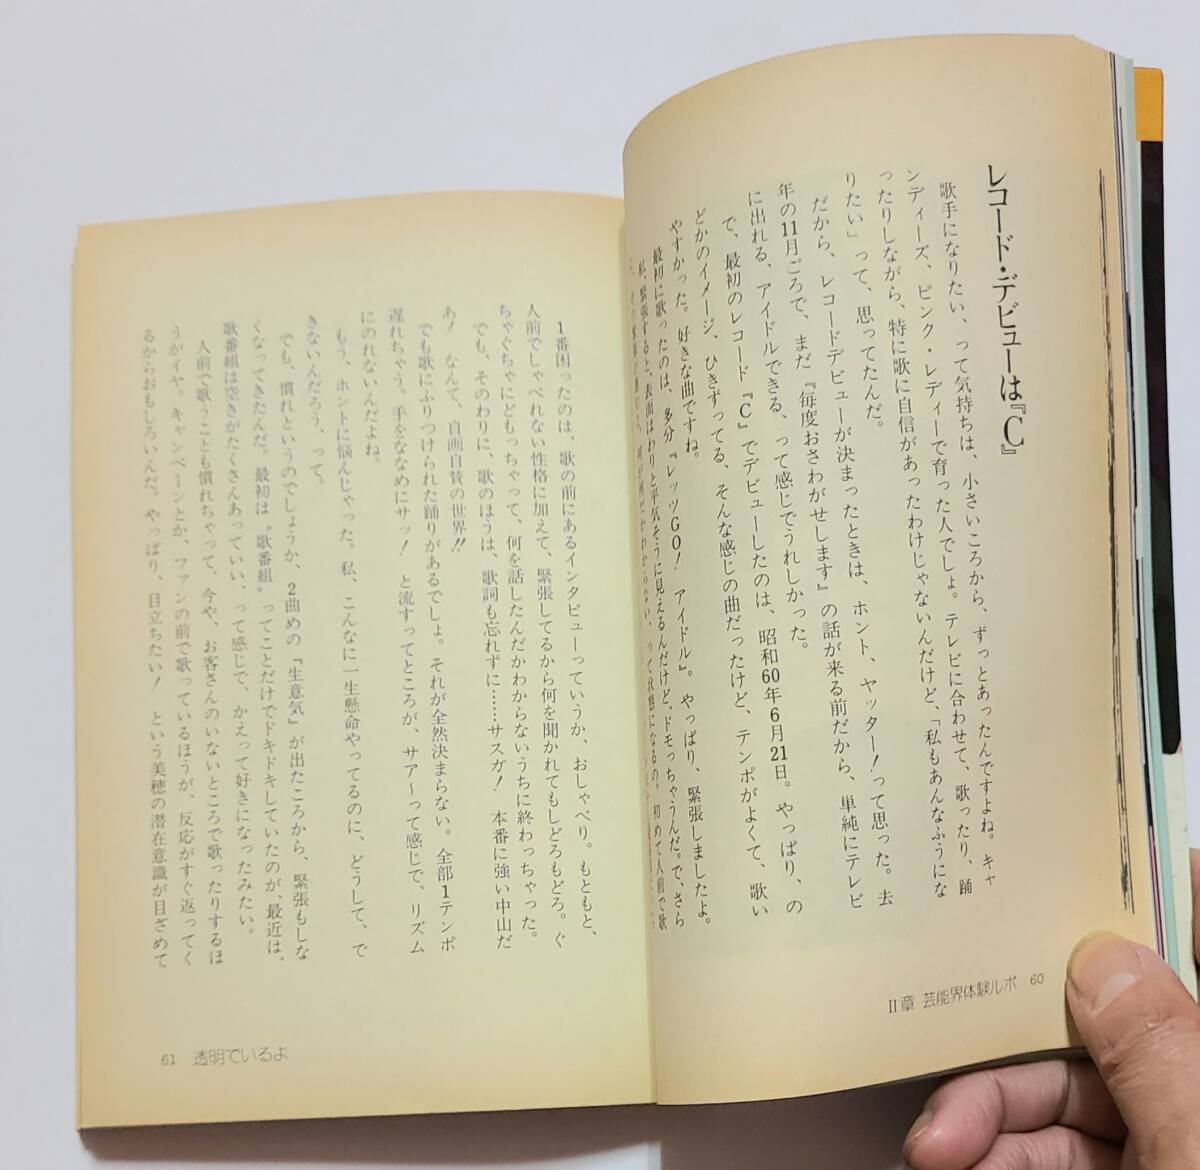 レコード・デビューは『C』
歌手になりたい、って気持ちは、小さいころから、ずっとあったんですよね。キャ
ンディーズ、ピンク・レディーで育った人でしょ。テレビに合わせて、歌ったり、踊
ったりしながら、特に歌に自信があったわけじゃないんだけど、「私もあんなふうにな
りたい」って、思ってたんだ。
だから、レコードデビューが決まったときは、ホント、ヤッター！って思った。去
年の11月ごろで、まだ『毎度おさわがせします』の話が来る前だから、単純にテレビ
に出れる、アイドルできる、って感じでうれしかった。
で、最初のレコード『C』でデビューしたのは、昭和60年6月21日。やっぱり、の
どかのイメージ、ひきずってる、そんな感じの曲だったけど、テンポがよくて、歌い
やすかった。好きな曲ですね。
最初に歌ったのは、多分『レッツGO！アイドル』。やっぱり、緊張しましたよ。
私、緊張すると、表面はわりと平気そうに見えるんだけど、ドモっちゃうんだ。で、さら
って状態になるの。初めて人前で歌
II章 芸能界体験ルポ 60
1番困ったのは、歌の前にあるインタビューっていうか、おしゃべり。もともと、
人前でしゃべれない性格に加えて、緊張してるから何を聞かれてもしどろもどろ。ぐ
ちゃぐちゃにどもっちゃって、何を話したんだかわからないうちに終わっちゃった。
でも、そのわりに、歌のほうは、歌詞も忘れずに……サスガ！ 本番に強い中山だ
あ！ なんて、自画自賛の世界!!
でも歌にふりつけられた踊りがあるでしょ。それが全然決まらない。全部1テンポ
遅れちゃう。手をななめにサッ！ と流すってところが、サア～って感じで、リズム
にのれないんだよね。
もう、ホントに悩んじゃった。私、こんなに一生懸命やってるのに、どうして、で
きないんだろう、って。
でも、慣れというのでしょうか、2曲めの『生意気』が出たころから、緊張もしな
くなってきたんだ。最初は〝歌番組〟ってことだけでドキドキしていたのが、最近は、
歌番組は空きがたくさんあっていい、って感じで、かえって好きになったみたい。
人前で歌うことも慣れちゃって、今や、お客さんのいないところで歌ったりするほ
うがイヤ。キャンペーンとか、ファンの前で歌っているほうが、反応がすぐ返ってく
るからおもしろいんだ。やっぱり、目立ちたい！ という美穂の潜在意識が目ざめて
61 透明でいるよ